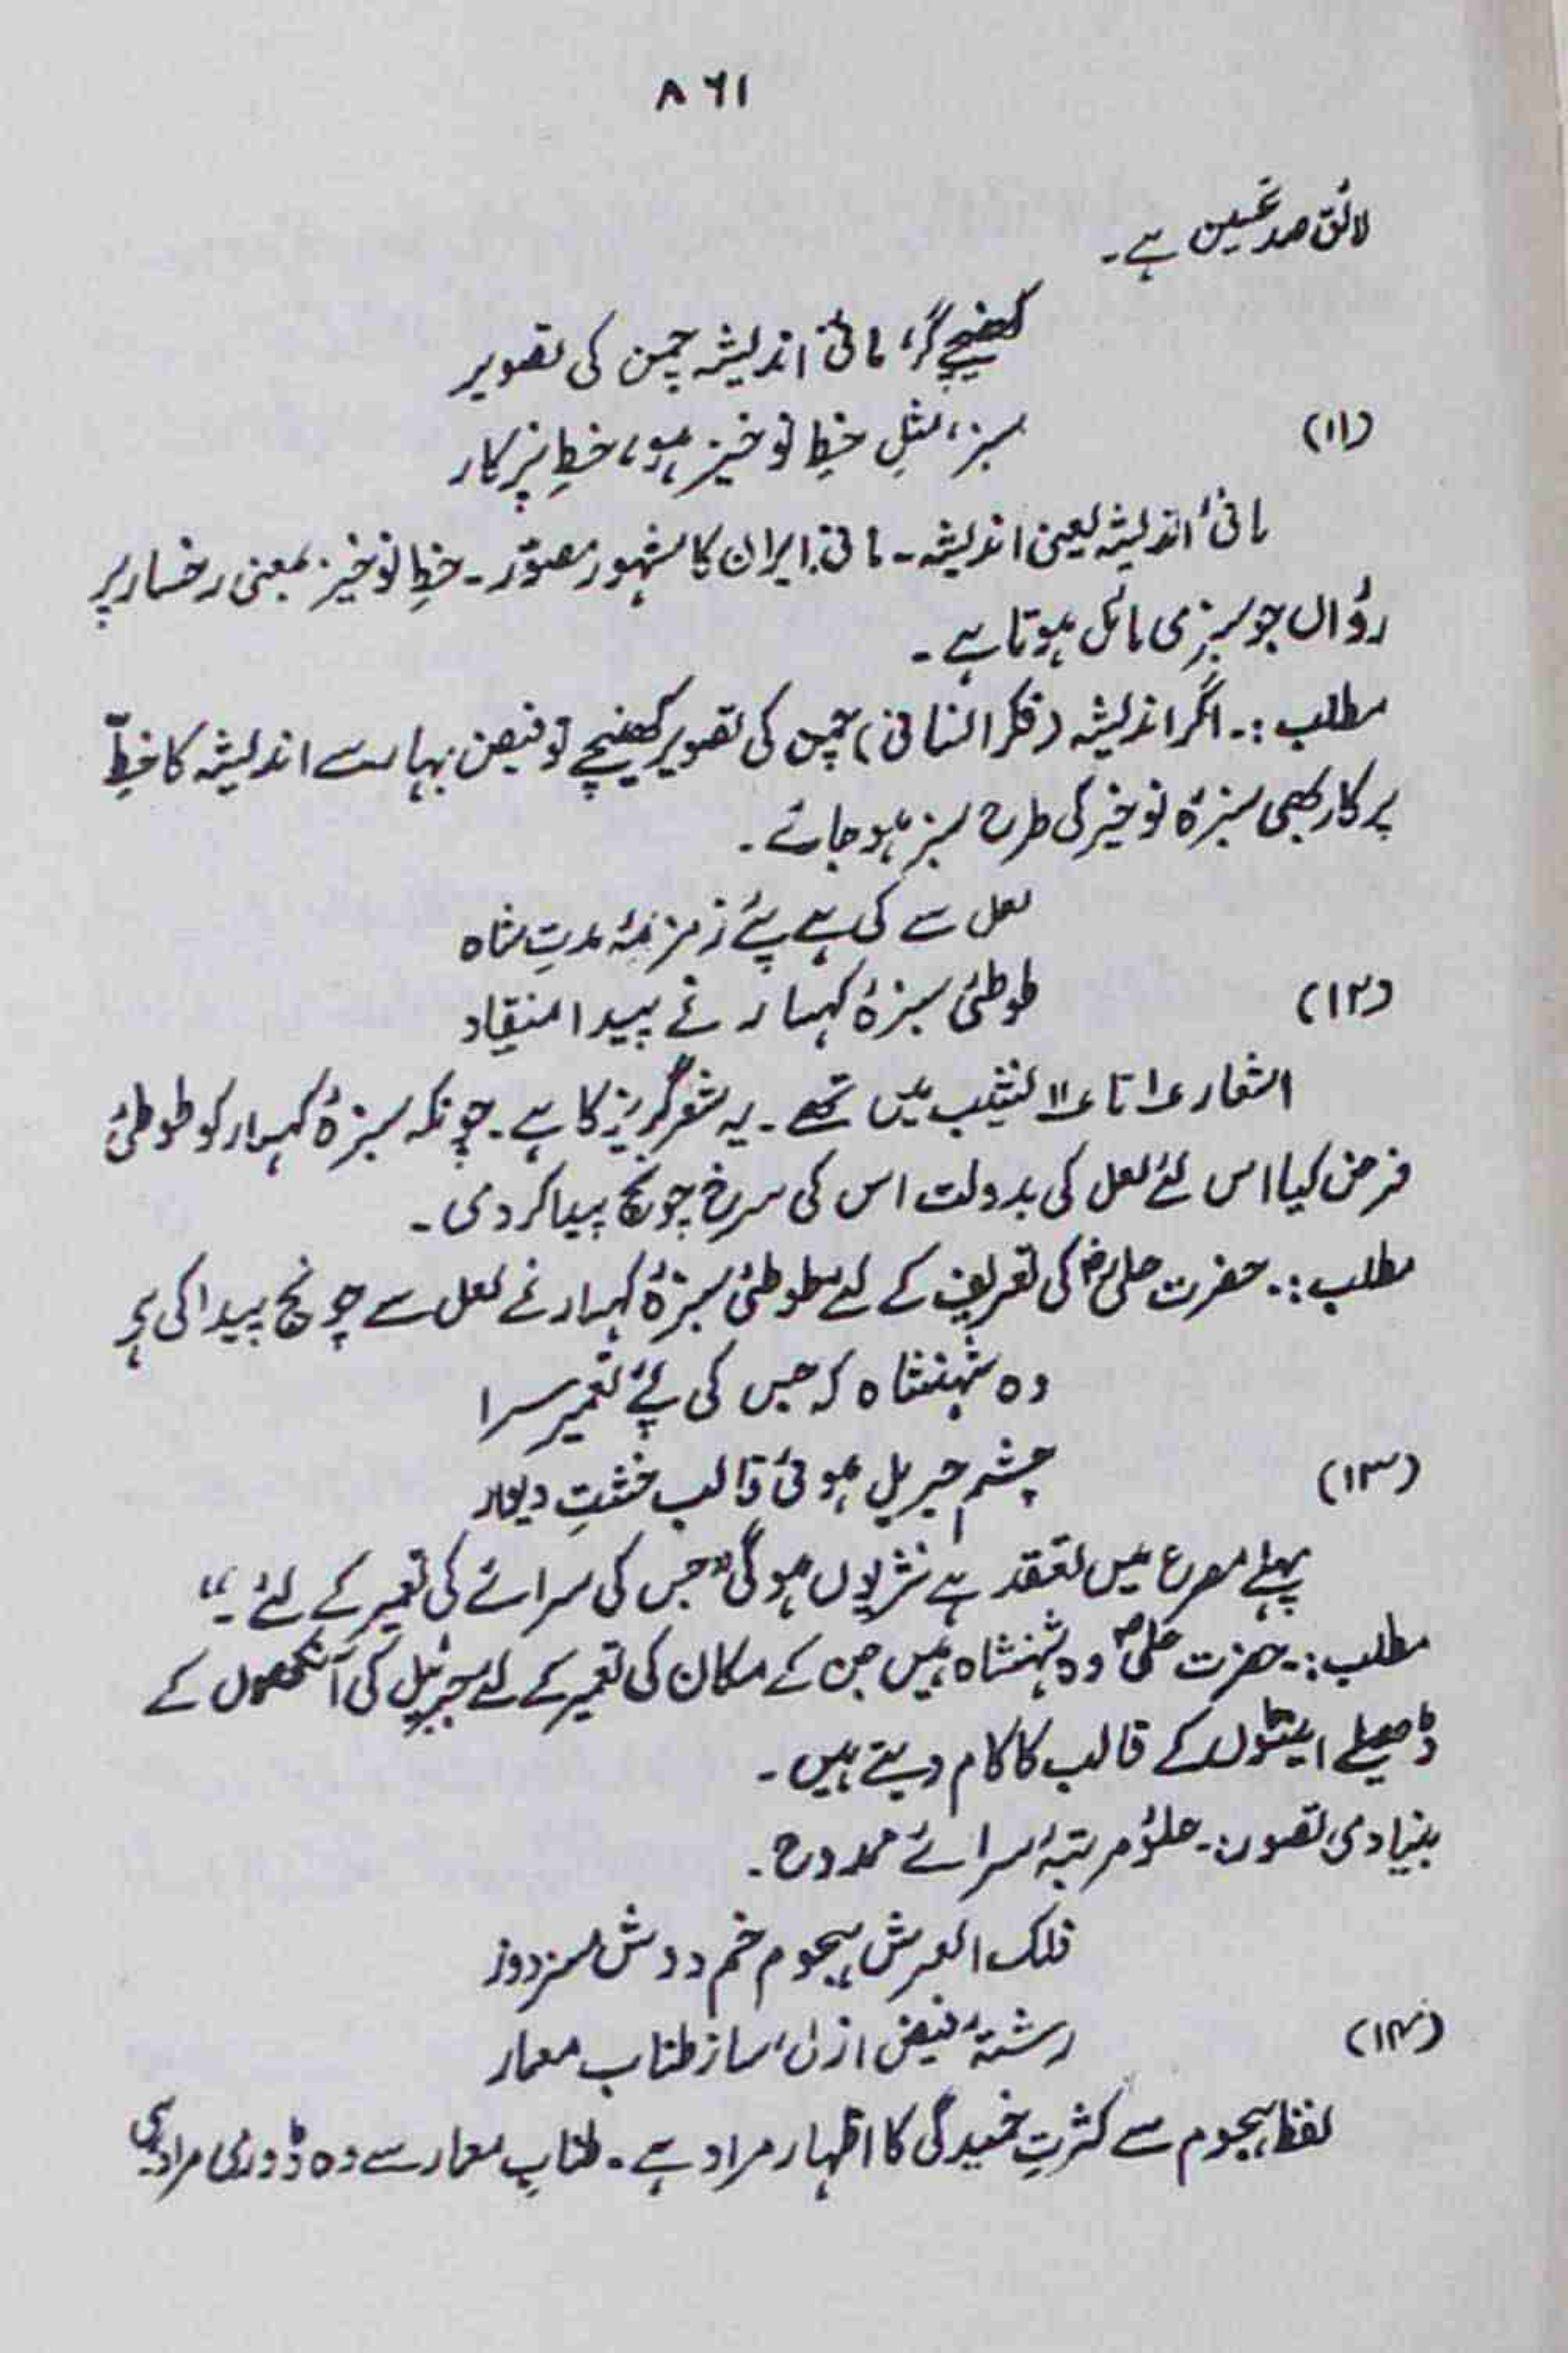 ۸۶۱
لائق صد تحسین ہے۔
کھینچے گر، مانئ اندیشہ چمن کی تصویر
(۱۱)
سبز، مثلِ خطِ نوخیز ہو، خطِ پرکار
مانئ اندیشہ یعنی اندیشہ۔ مانی ایران کا مشہور مصوّر۔ خطِ نوخیز بمعنی رخسار پر
رؤاں جو سبزی مائل ہوتا ہے۔
مطلب :۔ اگر اندیشہ (فکر انسانی) چمن کی تصویر کھینچے تو فیض بہار سے اندیشہ کا خطِّ
پرکار بھی سبزۂ نوخیز کی طرح سبز ہو جائے۔
لعل سے کی ہے پئے زمزمۂ مدحتِ شاہ
(۱۲)
طوطئ سبزۂ کہسار نے پیدا منقار
اشعار ۱ تا ۱۱ تشبیب میں تھے۔ یہ شعر گریز کا ہے۔ چونکہ سبزۂ کہسار کو طوطئ
فرض کیا اس لئے لعل کی بدولت اس کی سرخ چونچ پیدا کر دی۔
مطلب :۔ حضرت علیؓ کی تعریف کے لئے طوطئ سبزۂ کہسار نے لعل سے چونچ پیدا کی ہے
وہ شہنشاہ کہ جس کی پئے تعمیر سرا
(۱۳)
چشمِ جبریل ہوئی قالب خشتِ دیوار
پہلے مصرع میں تعقد ہے نثر یوں ہوگی "جس کی سرائے کی تعمیر کے لئے۔"
مطلب :۔ حضرت علیؓ وہ شہنشاہ ہیں جن کے مکان کی تعمیر کے لئے جبرئیل کی آنکھوں کے
ڈھیلے اینٹوں کے قالب کا کام دیتے ہیں۔
بنیادی تصور:۔ علوِ مرتبۂ سرائے ممدوح۔
فلک العرش ہجوم خم دوش مزدور
(۱۴)
رشتۂ فیض ازل، ساز طناب معمار
لفظ ہجوم سے کثرتِ خمیدگی کا اظہار مراد ہے۔ طنابِ معمار سے وہ ڈوری مراد ہے